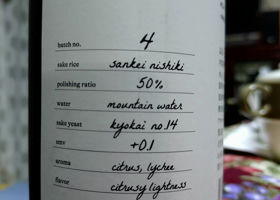 batch no. 4
sake rice sankei nishiki
polishing ratio 50%
water mountain water
sake yeast kyokai no.14
smv +0.1
aroma citrus, lychee
flavor citrusy lightness